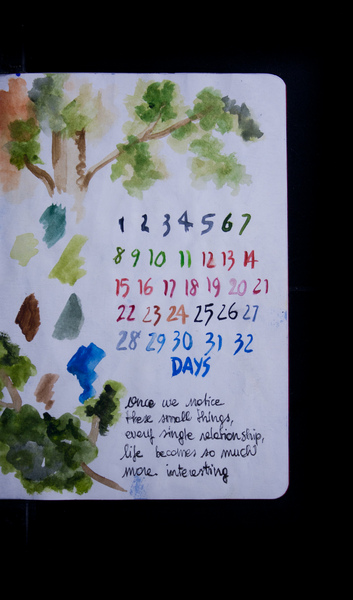 1 2 3 4 5 6 7
8 9 10 11 12 13 14
15 16 17 18 19 20 21
22 23 24 25 26 27
28 29 30 31 32
DAYS
Once we notice
these small things,
every single relationship,
life becomes so much
more interesting